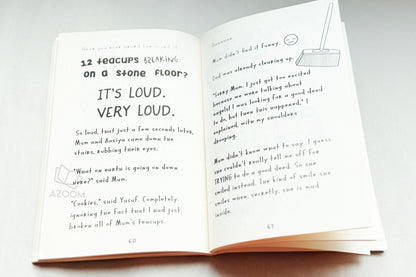 Have you ever heard the sound of
12 teacups BREAKING
on a stone floor?
IT'S LOUD.
VERY LOUD.
So loud, that just a few seconds later,
Mum and Aaniya came down the
stairs, rubbing their eyes.
"What on earth is going on down
here?" said Mum.
"Cookies," said Yusuf. Completely
ignoring the fact that I had just
broken all of Mum's teacups.
60
AZOOM
Mum didn't find it funny.
Dad was already cleaning up.
"Sorry Mum. I just got too excited
because we were talking about
angels! I was looking for a good deed
to do, but then this happened." I
explained, with my shoulders
drooping.
Mum didn't know what to say. I guess
she couldn't really tell me off for
TRYING to do a good deed. So she
smiled instead. The kind of smile she
smiles when, secretly, she is mad
inside.
61